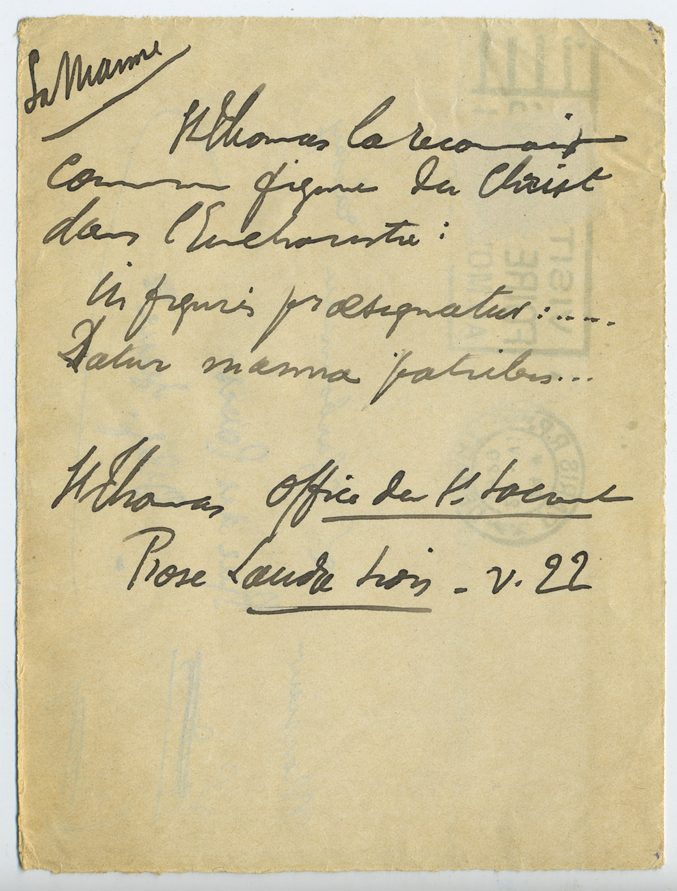 La Manne
St Thomas la reconnait
comme figure du Christ
dans l'Eucharistie :
In figuris præsignatur : .....
Datur manna patribus ...
St Thomas Office du St Sacrement
Prose Lauda Sion - v. 22